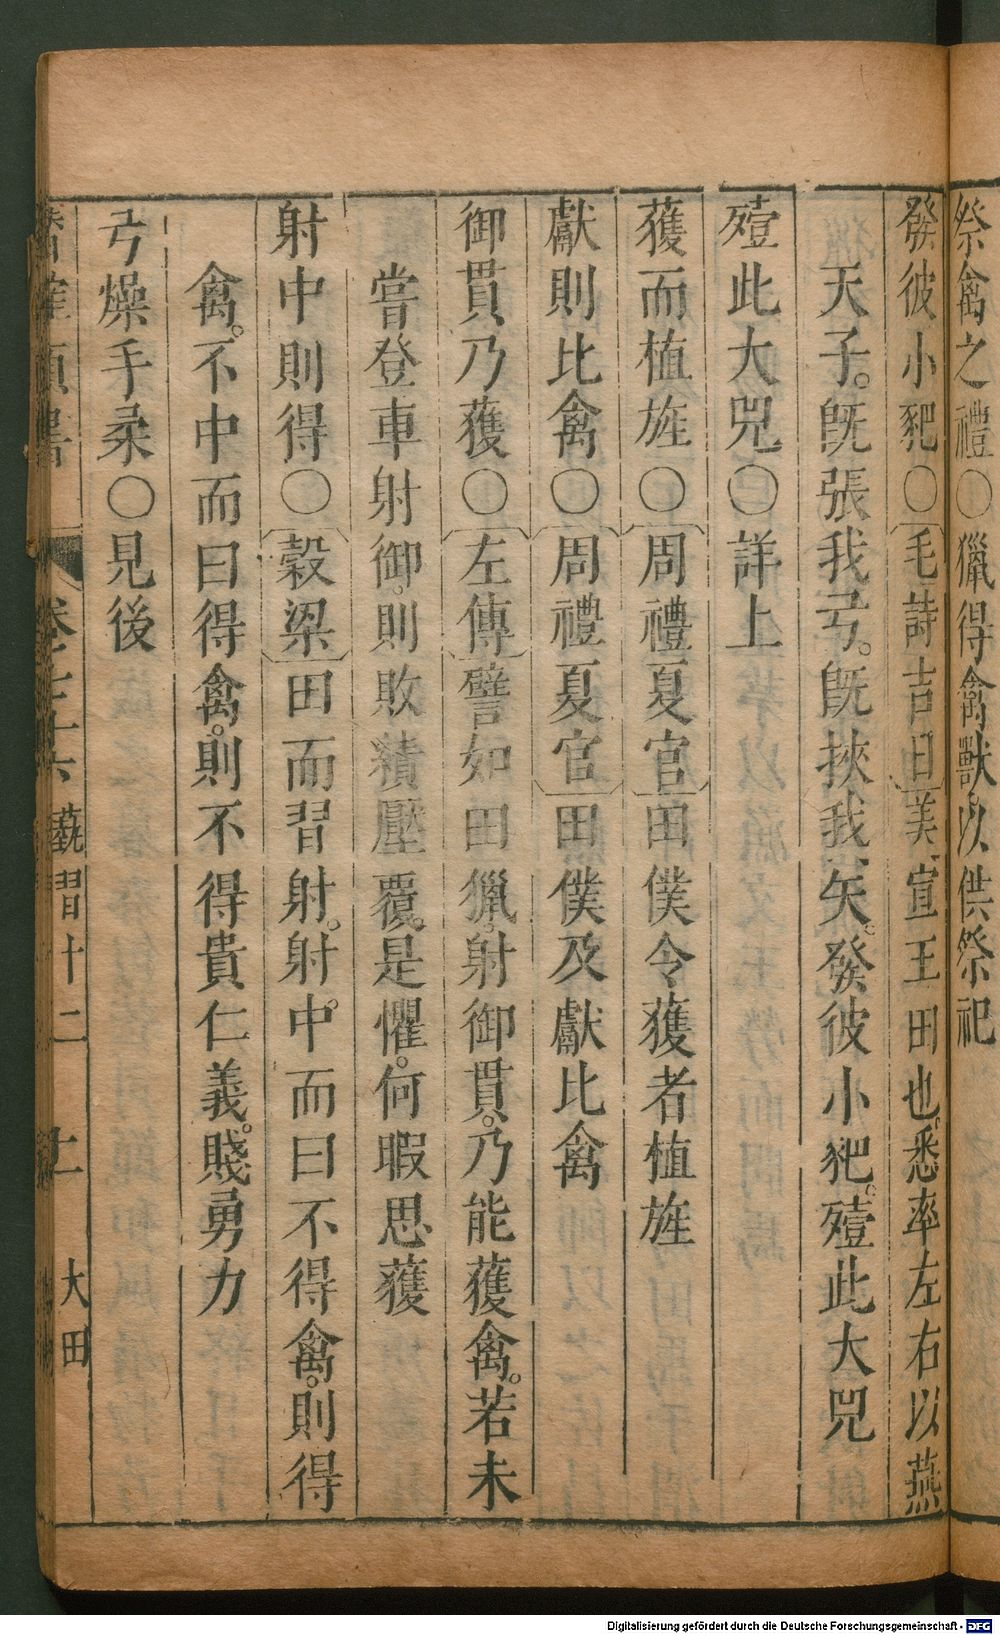 祭禽之禮○獵得禽獸以供祭祀
發彼小豝○〔毛詩吉日〕美宣王田也悉率左右以燕
天子。旣張我弓。旣挾我矢。發彼小豝。殪此大兕
殪此大兕○詳上
獲而植旌○〔周禮夏官〕田僕令獲者植旌
獻則比禽○〔周禮夏官〕田僕及獻比禽
御貫乃獲○〔左傳〕譬如田獵。射御貫。乃能獲禽。若未
嘗登車射御。則敗績壓覆。是懼。何暇思獲
射中則得○〔穀梁〕田而習射。射中。而曰不得禽。則得
禽。不中而曰得禽。則不得貴仁義。賤勇力
弓燥手柔○見後
類書 卷之 藝習十二 大田
Digitalisierung gefördert durch die Deutsche Forschungsgemeinschaft - DFG